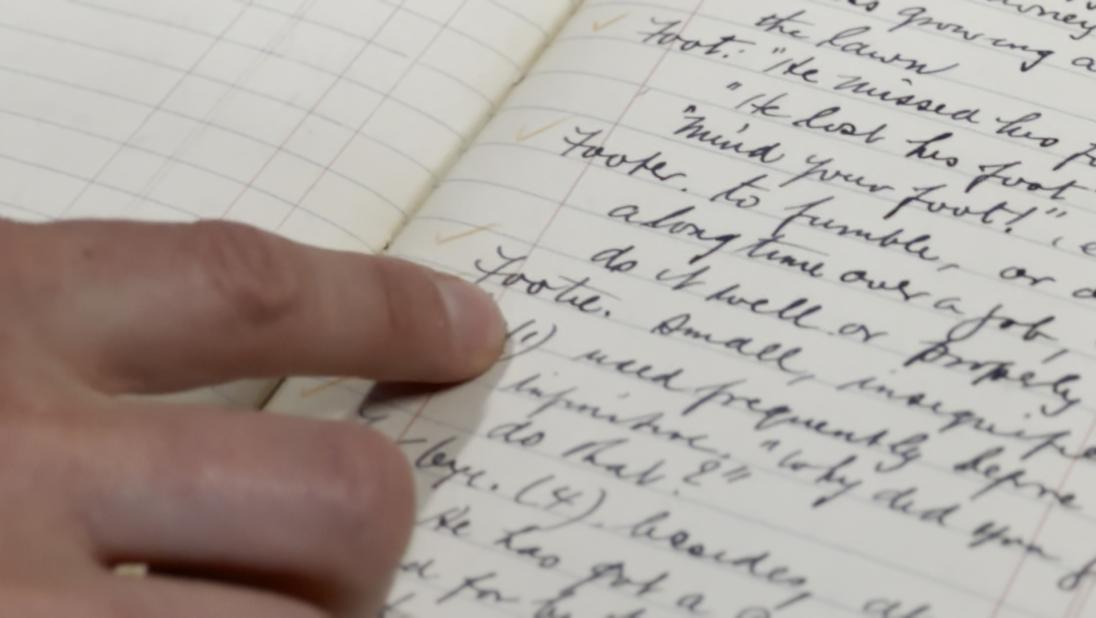 growing a
the lawn
Foot: "He missed his
"He lost his foot
"Mind your foot!"
Footer. to fumble, or
a long time over a job,
do it well or properly
Footie. Small,
(1) used frequently before
infinitive. "Why did you
do that?"
(4). besides,
He has got a
for